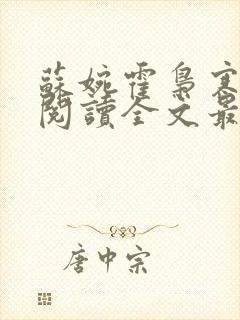 蘇婉霍梟寒
閱讀全文最
唐中宗